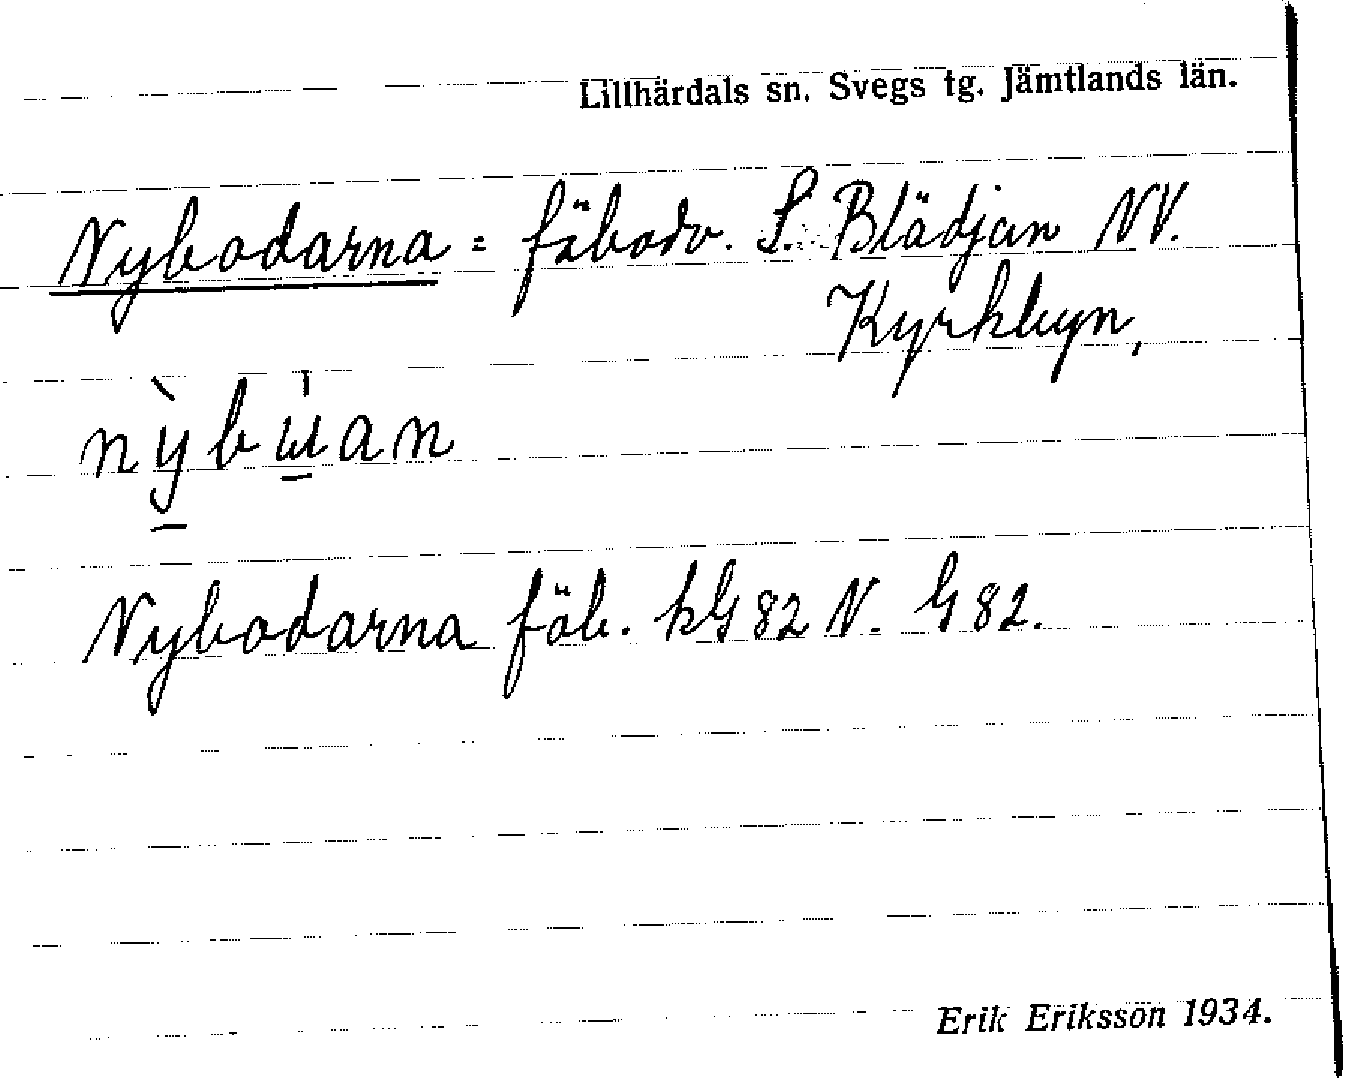 Lillhärdals sn. Svegs tg. Jämtlands län.
Nybodarna = fäbodv. S. Blädjan NV.
Kyrkbyn,
nỳ̱bɯ̱̍an
Nybodarna fäb. kG82 N. G 82.
Erik Eriksson 1934.